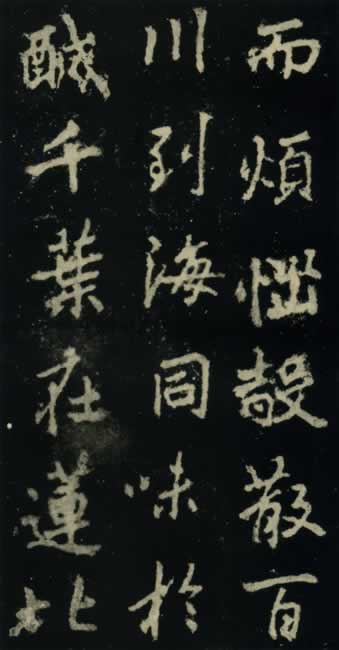 而煩惱殼散百
川到海同味於
鹹千葉在蓮比